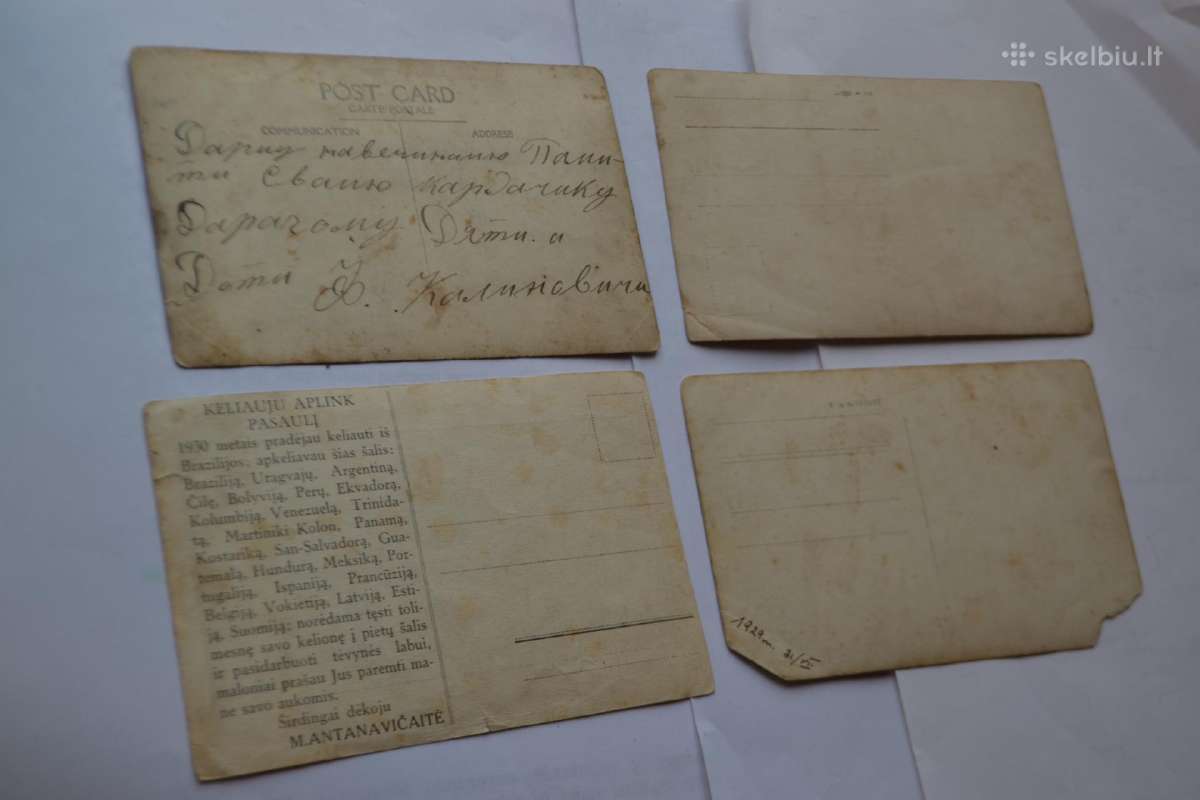 skelbiu.lt
POST CARD
CARTE POSTALE
COMMUNICATION ADDRESS
Дарию
Сваию кардачику
Дарагому Дяти и
Дяти Калиновичи
KELIAUJU APLINK
PASAULĮ
1930 metais pradėjau keliauti iš
Brazilijos; apkeliavau šias šalis:
Braziliją, Uragvajų, Argentiną,
Čilę, Bolyviją, Perų, Ekvadorą,
Kolumbiją, Venezuelą, Trinida-
tą, Martiniki Kolon, Panamą,
Kostariką, San-Salvadorą, Gua-
temalą, Hundurą, Meksiką, Por-
tugaliją, Ispaniją, Prancūziją,
Belgiją, Vokietiją, Latviją, Esti-
ją, Suomiją; norėdama tęsti toli-
mesnę savo kelionę į pietų šalis
ir pasidarbuoti tėvynės labui,
maloniai prašau Jus paremti ma-
ne savo aukomis.
Širdingai dėkoju
M. ANTANAVIČAITĖ
1929 m. 31/VII